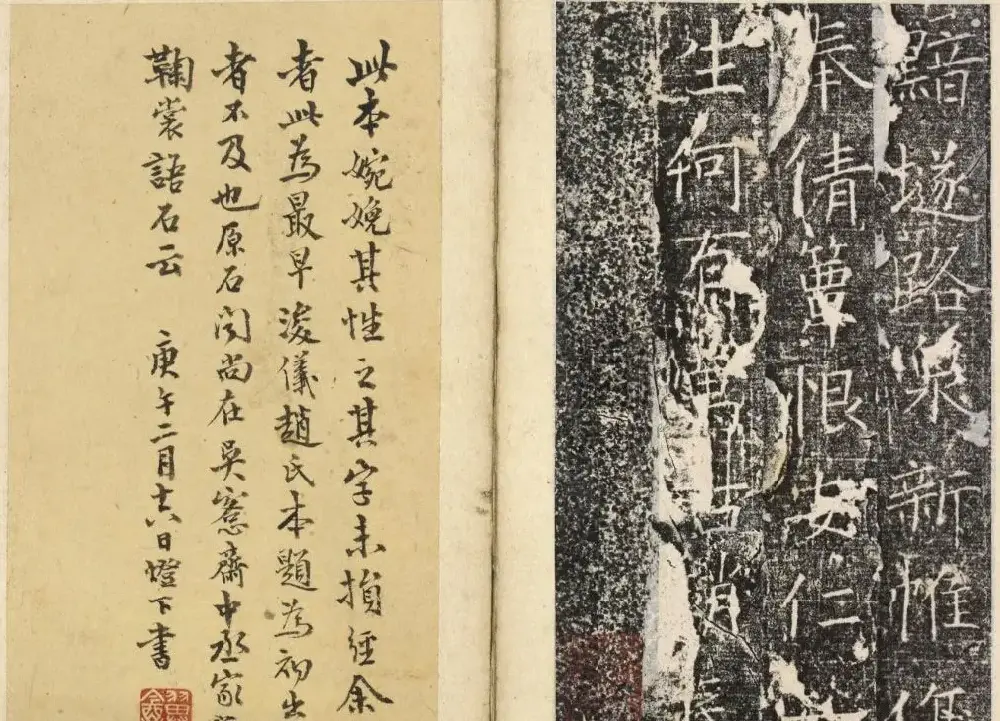 黯燧路新惟
奉倩簟恨安仁
生何有
此本婉娩其性之其字未損經余
者此為最早浚儀趙氏本題為初出
者不及也原石聞尚在吳愙齋中丞家
鞠裳語石云 庚午二月十六日燈下書